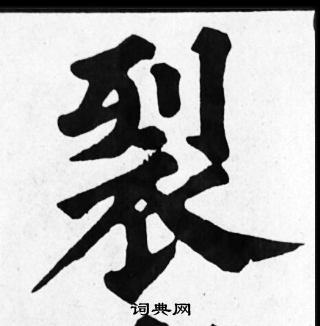 裂
词典网